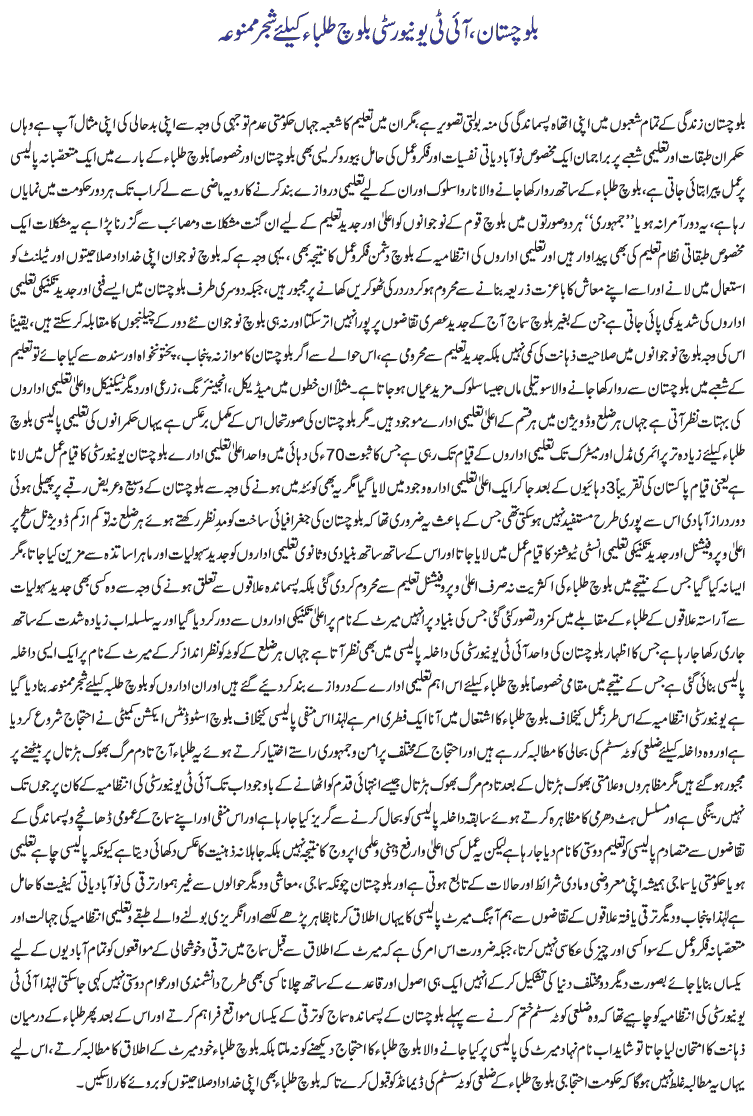 بلوچستان، آئی ٹی یونیورسٹی بلوچ طلباء کیلئے شجر ممنوعہ
بلوچستان زندگی کے تمام شعبوں میں اپنی اتھاہ پسماندگی کی منہ بولتی تصویر ہے، مگر ان میں تعلیم کا شعبہ جہاں حکومتی عدم توجہی کی وجہ سے اپنی بدحالی کی اپنی مثال آپ ہے وہاں
حکمران طبقات اور تعلیمی شعبے پر براجمان ایک مخصوص نوآبادیاتی نفسیات اور فکر و عمل کی حامل بیوروکریسی بھی بلوچستان اور خصوصاً بلوچ طلباء کے بارے میں ایک متعصبانہ پالیسی
پر عمل پیرا بتائی جاتی ہے، بلوچ طلباء کے ساتھ روا رکھا جانے والا ناروا سلوک اور ان کے لیے تعلیمی دروازے بند کرنے کا رویہ ماضی سے لے کر اب تک ہر دور حکومت میں نمایاں
رہا ہے، یہ دور آمرانہ ہو یا ’’جمہوری‘‘ ہر دو صورتوں میں بلوچ قوم کے نوجوانوں کو اعلیٰ اور جدید تعلیم کے لیے ان گنت مشکلات و مصائب سے گزرنا پڑا ہے یہ مشکلات ایک
مخصوص طبقاتی نظام تعلیم کی بھی پیداوار ہیں اور تعلیمی اداروں کی انتظامیہ کے بلوچ دشمن فکر و عمل کا نتیجہ بھی، یہی وجہ ہے کہ بلوچ نوجوان اپنی خداداد صلاحیتوں اور ٹیلنٹ کو
استعمال میں لانے اور اسے اپنے معاش کا باعزت ذریعہ بنانے سے محروم ہو کر در در کی ٹھوکریں کھانے پر مجبور ہیں، جبکہ دوسری طرف بلوچستان میں ایسے فنی اور جدید تکنیکی تعلیمی
اداروں کی شدید کمی پائی جاتی ہے جن کے بغیر بلوچ سماج آج کے جدید عصری تقاضوں پر پورا نہیں اتر سکتا اور نہ ہی بلوچ نوجوان نئے دور کے چیلنجوں کا مقابلہ کر سکتے ہیں، یقیناً
اس کی وجہ بلوچ نوجوانوں میں صلاحیت ذہانت کی کمی نہیں بلکہ جدید تعلیم سے محرومی ہے، اس حوالے سے اگر بلوچستان کا موازنہ پنجاب، پختونخواہ اور سندھ سے کیا جائے تو تعلیم
کے شعبے میں بلوچستان سے روا رکھا جانے والا سوتیلی ماں جیسا سلوک مزید عیاں ہو جاتا ہے۔ مثلاً ان خطوں میں میڈیکل، انجینئرنگ، زرعی اور دیگر ٹیکنیکل و اعلیٰ تعلیمی اداروں
کی بہتات نظر آتی ہے جہاں ہر ضلع و ڈویژن میں ہر قسم کے اعلیٰ تعلیمی ادارے موجود ہیں۔ مگر بلوچستان کی صورتحال اس کے مکمل برعکس ہے یہاں حکمرانوں کی تعلیمی پالیسی بلوچ
طلباء کیلئے زیادہ تر پرائمری مڈل اور میٹرک تک تعلیمی اداروں کے قیام تک رہی ہے جس کا ثبوت 70ء کی دہائی میں واحد اعلیٰ تعلیمی ادارے بلوچستان یونیورسٹی کا قیام عمل میں لانا
ہے یعنی قیام پاکستان کی تقریباً 3 دہائیوں کے بعد جا کر ایک اعلیٰ تعلیمی ادارہ وجود میں لایا گیا مگر یہ بھی کوئٹہ میں ہونے کی وجہ سے بلوچستان کے وسیع و عریض رقبے پر پھیلی ہوئی
دور دراز آبادی اس سے پوری طرح مستفید نہیں ہو سکتی تھی جس کے باعث یہ ضروری تھا کہ بلوچستان کی جغرافیائی ساخت کو مدِ نظر رکھتے ہوئے ہر ضلع نہ تو کم از کم ڈویژنل سطح پر
اعلیٰ و پروفیشنل اور جدید تکنیکی تعلیمی انسٹی ٹیوشنز کا قیام عمل میں لایا جاتا اور اس کے ساتھ ساتھ بنیادی و ثانوی تعلیمی اداروں کو جدید سہولیات اور ماہر اساتذہ سے مزین کیا جاتا، مگر
ایسا نہ کیا گیا جس کے نتیجے میں بلوچ طلباء کی اکثریت نہ صرف اعلیٰ و پروفیشنل تعلیم سے محروم کر دی گئی بلکہ پسماندہ علاقوں سے تعلق ہونے کی وجہ سے وہ کسی بھی جدید سہولیات
سے آراستہ علاقوں کے طلباء کے مقابلے میں کمزور تصور کئی گئی جس کی بنیاد پر انہیں میرٹ کے نام پر اعلیٰ تکنیکی اداروں سے دور کر دیا گیا اور یہ سلسلہ اب زیادہ شدت کے ساتھ
جاری رکھا جا رہا ہے جس کا اظہار بلوچستان کی واحد آئی ٹی یونیورسٹی کی داخلہ پالیسی میں بھی نظر آتا ہے جہاں ہر ضلع کے کوٹہ کو نظر انداز کر کے میرٹ کے نام پر ایک ایسی داخلہ
پالیسی بنائی گئی ہے جس کے نتیجے میں مقامی خصوصاً بلوچ طلباء کیلئے اس اہم تعلیمی ادارے کے دروازے بند کر دیئے گئے ہیں اور ان اداروں کو بلوچ طلبہ کیلئے شجر ممنوعہ بنا دیا گیا
ہے یونیورسٹی انتظامیہ کے اس طرز عمل کیخلاف بلوچ طلباء کا اشتعال میں آنا ایک فطری امر ہے لہٰذا اس منفی پالیسی کیخلاف بلوچ اسٹوڈنٹس ایکشن کمیٹی نے احتجاج شروع کر دیا
ہے اور وہ داخلہ کیلئے ضلعی کوٹہ سسٹم کی بحالی کا مطالبہ کر رہے ہیں اور احتجاج کے مختلف پر امن و جمہوری راستے اختیار کرتے ہوئے یہ طلباء آج تادم مرگ بھوک ہڑتال پر بیٹھنے پر
مجبور ہو گئے ہیں مگر مظاہروں و علامتی بھوک ہڑتال کے بعد تادم مرگ بھوک ہڑتال جیسے انتہائی قدم کو اٹھانے کے باوجود اب تک آئی ٹی یونیورسٹی کی انتظامیہ کے کان پر جوں تک
نہیں رینگی ہے اور مسلسل ہٹ دھرمی کا مظاہرہ کرتے ہوئے سابقہ داخلہ پالیسی کو بحال کرنے سے گریز کیا جا رہا ہے اور اس منفی اور اپنے سماج کے عمومی ڈھانچے و پسماندگی کے
تقاضوں سے متصادم پالیسی کو تعلیم دوستی کا نام دیا جا رہا ہے لیکن یہ عمل کسی اعلیٰ و ارفع ذہنی و علمی اپروچ کا نتیجہ نہیں بلکہ جاہلانہ ذہنیت کا عکس دکھائی دیتا ہے کیونکہ پالیسی چاہے تعلیمی
ہو یا حکومتی یا سماجی ہمیشہ اپنی معروضی و مادی شرائط اور حالات کے تابع ہوتی ہے اور بلوچستان چونکہ سماجی، معاشی و دیگر حوالوں سے غیر ہموار ترقی کی نوآبادیاتی کیفیت کا حامل
ہے لہٰذا پنجاب و دیگر ترقی یافتہ علاقوں کے تقاضوں سے ہم آہنگ میرٹ پالیسی کا یہاں اطلاق کرنا بظاہر پڑھے لکھے اور انگریزی بولنے والے طبقے و تعلیمی انتظامیہ کی جہالت اور
متعصبانہ فکر و عمل کے سوا کسی اور چیز کی عکاسی نہیں کرتا، جبکہ ضرورت اس امر کی ہے کہ میرٹ کے اطلاق سے قبل سماج میں ترقی و خوشحالی کے مواقعوں کو تمام آبادیوں کے لیے
یکساں بنایا جائے بصورت دیگر دو مختلف دنیا کی تشکیل کر کے انہیں ایک ہی اصول اور قاعدے کے ساتھ چلانا کسی بھی طرح دانشمندی اور عوام دوستی نہیں کہی جا سکتی لہٰذا آئی ٹی
یونیورسٹی کی انتظامیہ کو چاہیے تھا کہ وہ ضلعی کوٹہ سسٹم ختم کرنے سے پہلے بلوچستان کے پسماندہ سماج کو ترقی کے یکساں مواقع فراہم کرتے اور اس کے بعد پھر طلباء کے درمیان
ذہانت کا امتحان لیا جاتا تو شاید اب نام نہاد میرٹ کی پالیسی پر کیا جانے والا بلوچ طلباء کا احتجاج دیکھنے کو نہ ملتا بلکہ بلوچ طلباء خود میرٹ کے اطلاق کا مطالبہ کرتے، اس لیے
یہاں یہ مطالبہ غلط نہیں ہو گا کہ حکومت احتجاجی بلوچ طلباء کے ضلعی کوٹہ سسٹم کی ڈیمانڈ کو قبول کرے تاکہ بلوچ طلباء بھی اپنی خداداد صلاحیتوں کو بروئے کار لا سکیں۔